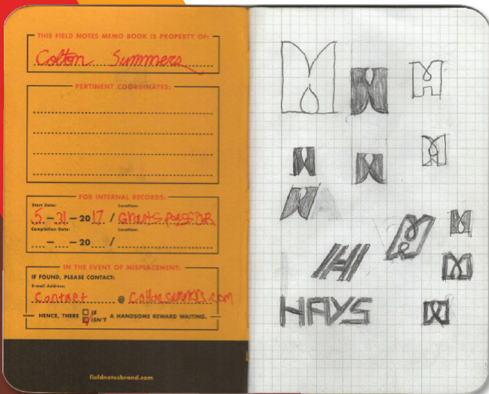 THIS FIELD NOTES MEMO BOOK IS PROPERTY OF:
Colton Summers
PERTINENT COORDINATES:
FOR INTERNAL RECORDS:
Start Date: Location:
5-31-2017 /
Completion Date: Location:
— — 20 /
IN THE EVENT OF MISPLACEMENT:
IF FOUND, PLEASE CONTACT:
E-mail Address:
Contact @
HENCE, THERE IS
ISN'T A HANDSOME REWARD WAITING.
fieldnotesbrand.com
HAYS